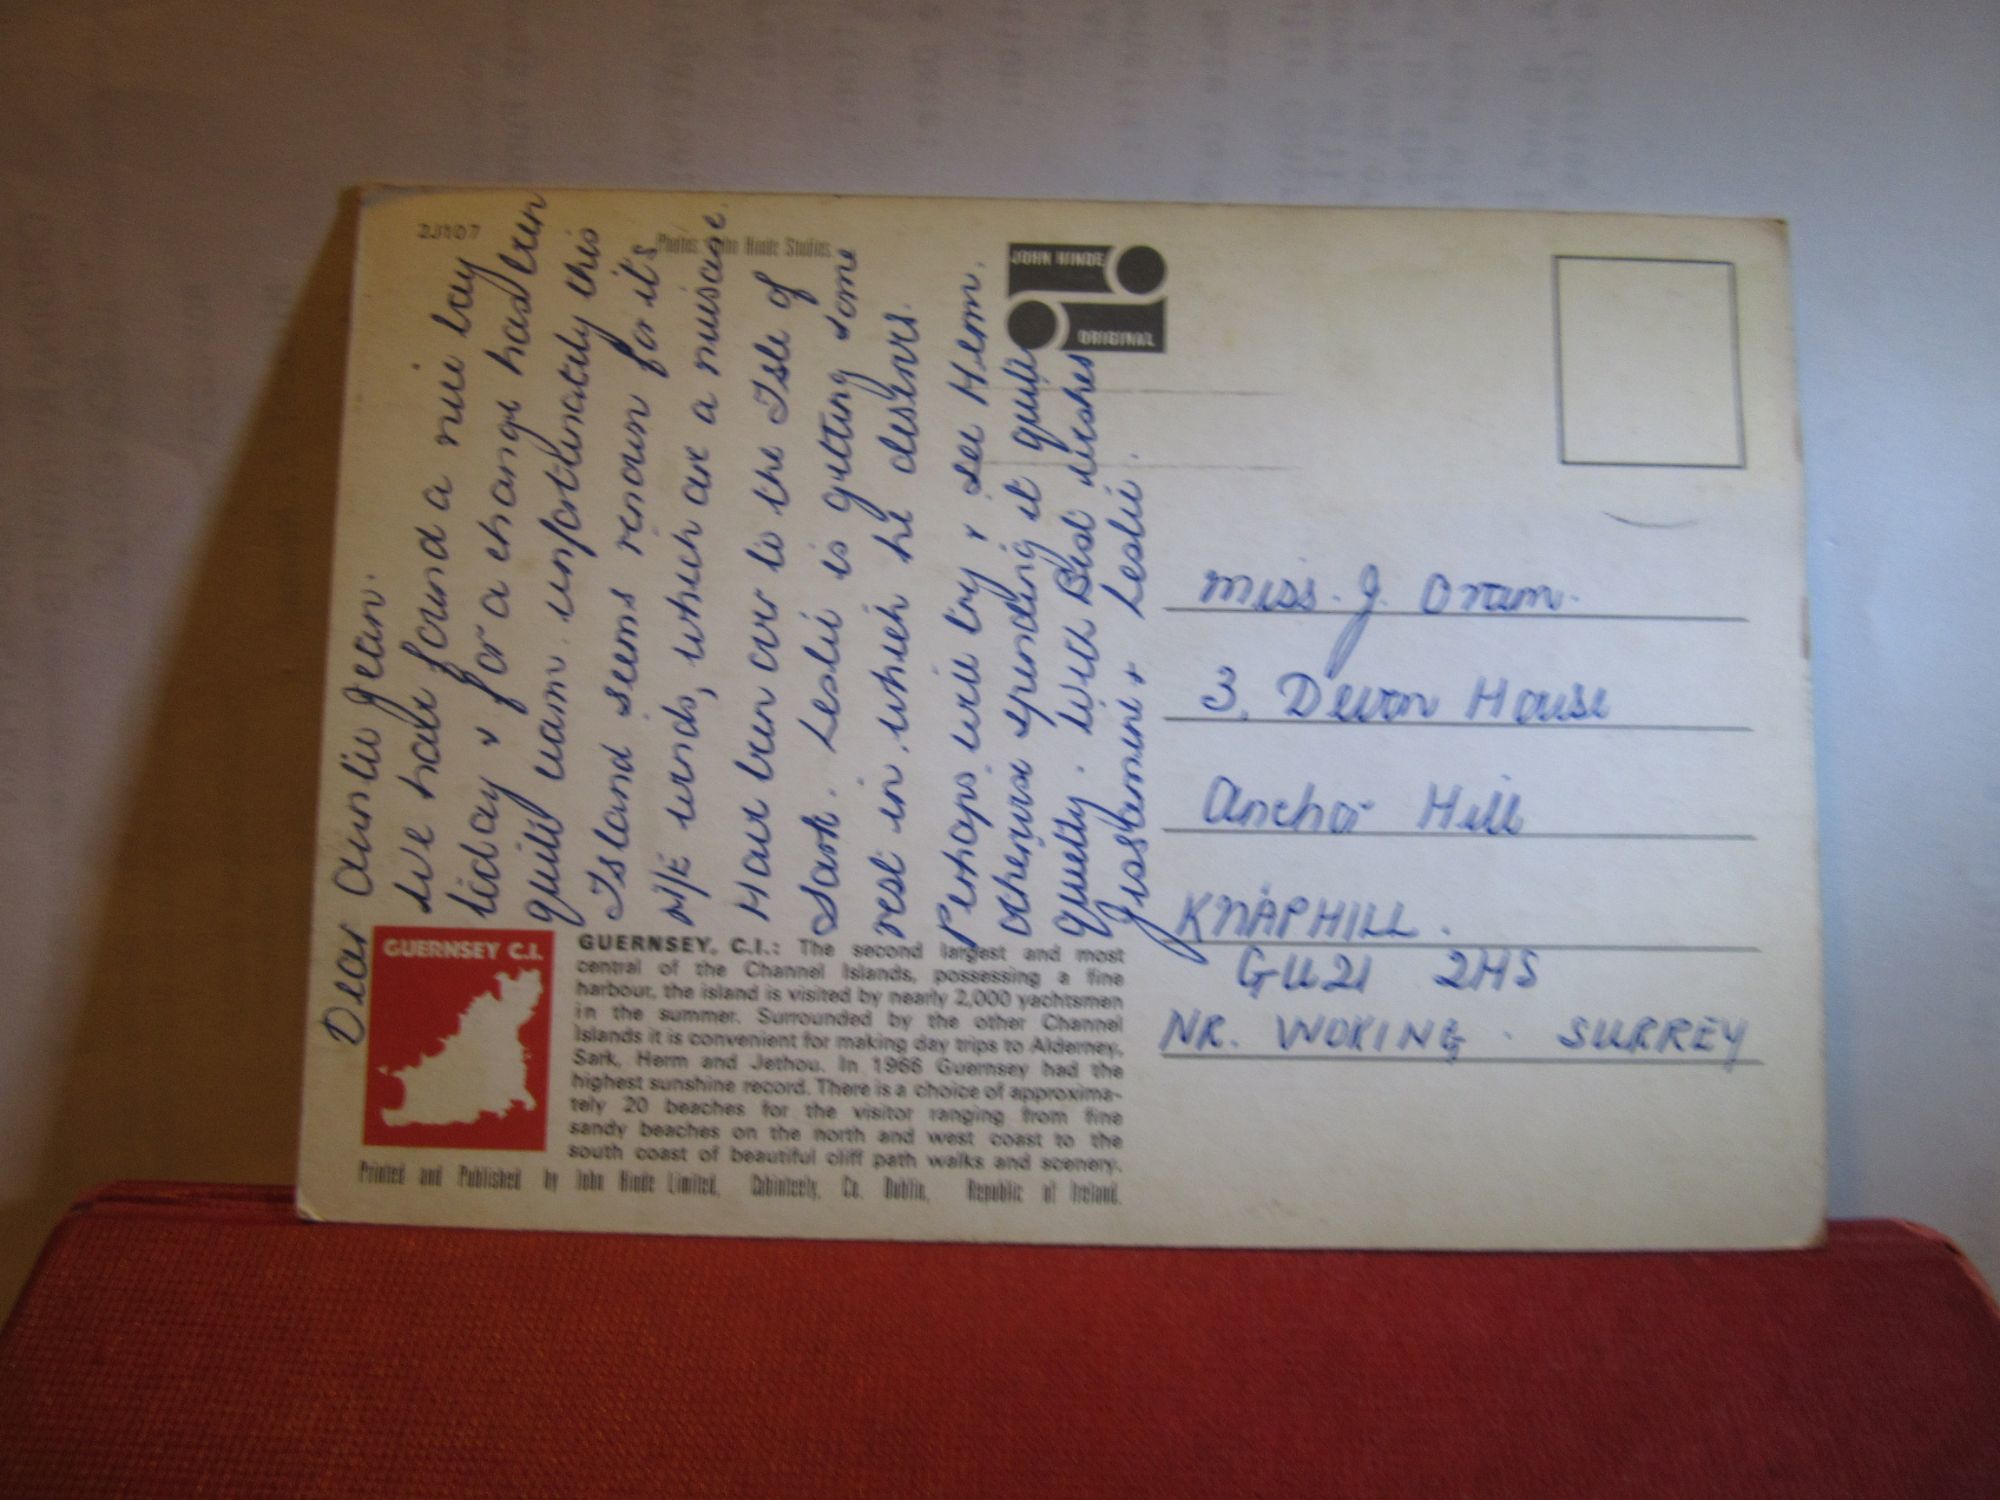 2J107
Photos: John Hinde Studios.
JOHN HINDE
ORIGINAL
Dear Auntie Jean.
We have found a nice bay
liday & for a change has been
quite warm. unfortunately this
Island seems renown for it's
N/E winds, which are a nuisance.
Have been over to the Isle of
Sark. Leslie is getting some
rest in which he deserves.
Perhaps will try & see Herm.
otherwise spending it quite
quietly. With Best wishes
Jessamine & Leslie.
Miss. J. Oram.
3, Devon House
Anchor Hill
KNAPHILL.
GU21 2HS
NR. WOKING. SURREY
GUERNSEY C.I.
GUERNSEY, C.I.: The second largest and most
central of the Channel Islands, possessing a fine
harbour, the island is visited by nearly 2,000 yachtsmen
in the summer. Surrounded by the other Channel
Islands it is convenient for making day trips to Alderney,
Sark, Herm and Jethou. In 1966 Guernsey had the
highest sunshine record. There is a choice of approxima-
tely 20 beaches for the visitor ranging from fine
sandy beaches on the north and west coast to the
south coast of beautiful cliff path walks and scenery.
Printed and Published by John Hinde Limited, Cabinteely, Co. Dublin, Republic of Ireland.